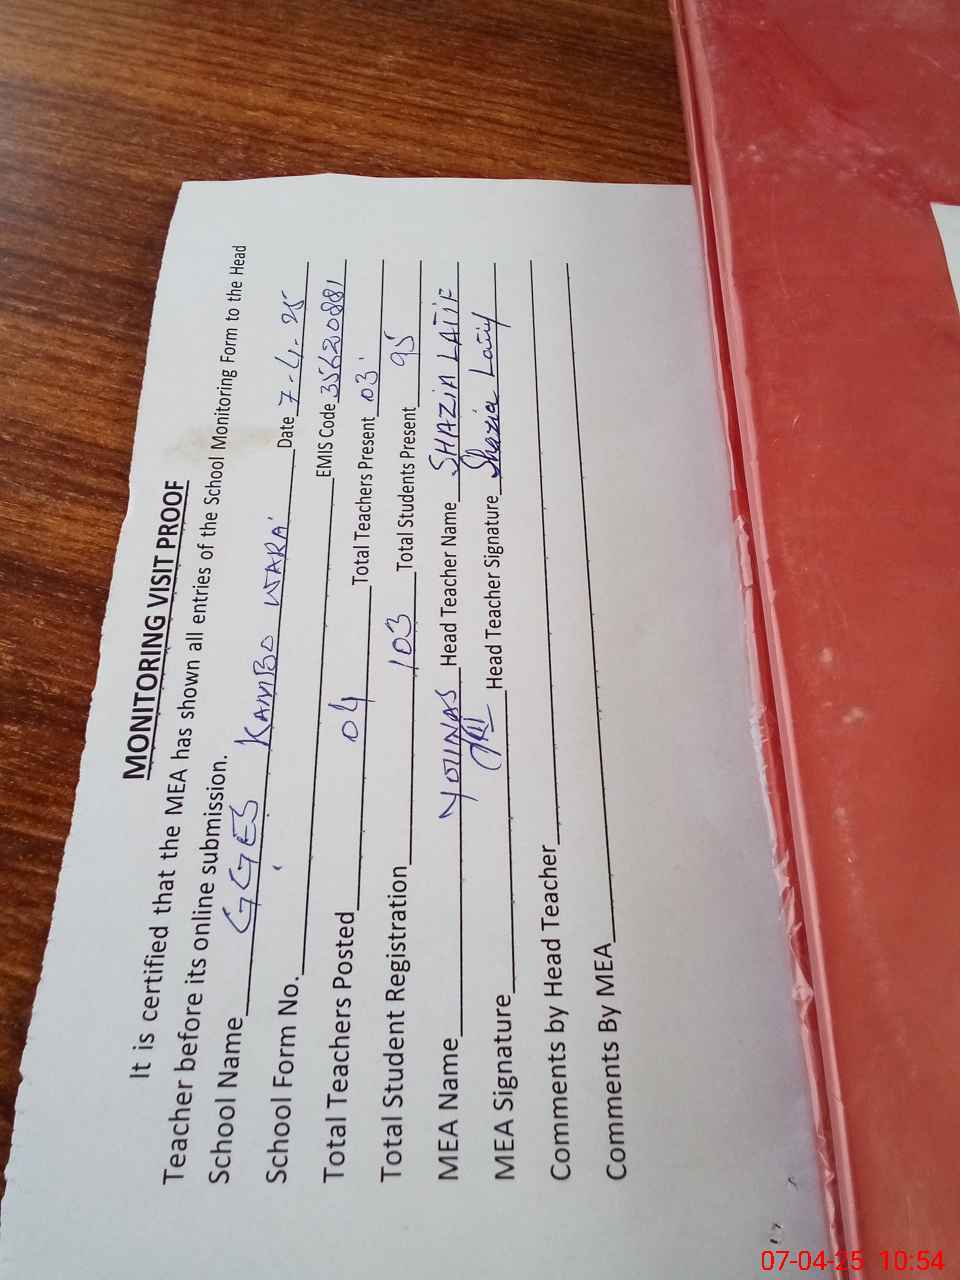 MONITORING VISIT PROOF
It is certified that the MEA has shown all entries of the School Monitoring Form to the Head
Teacher before its online submission.
School Name GGES KAMBO WARA Date 7-4-25
School Form No. EMIS Code 35620881
Total Teachers Posted 04 Total Teachers Present 03
Total Student Registration 103 Total Students Present 95
MEA Name YOUNAS Head Teacher Name SHAZIA LATIF
MEA Signature Head Teacher Signature Shazia Latif
Comments by Head Teacher
Comments By MEA
07-04-25 10:54